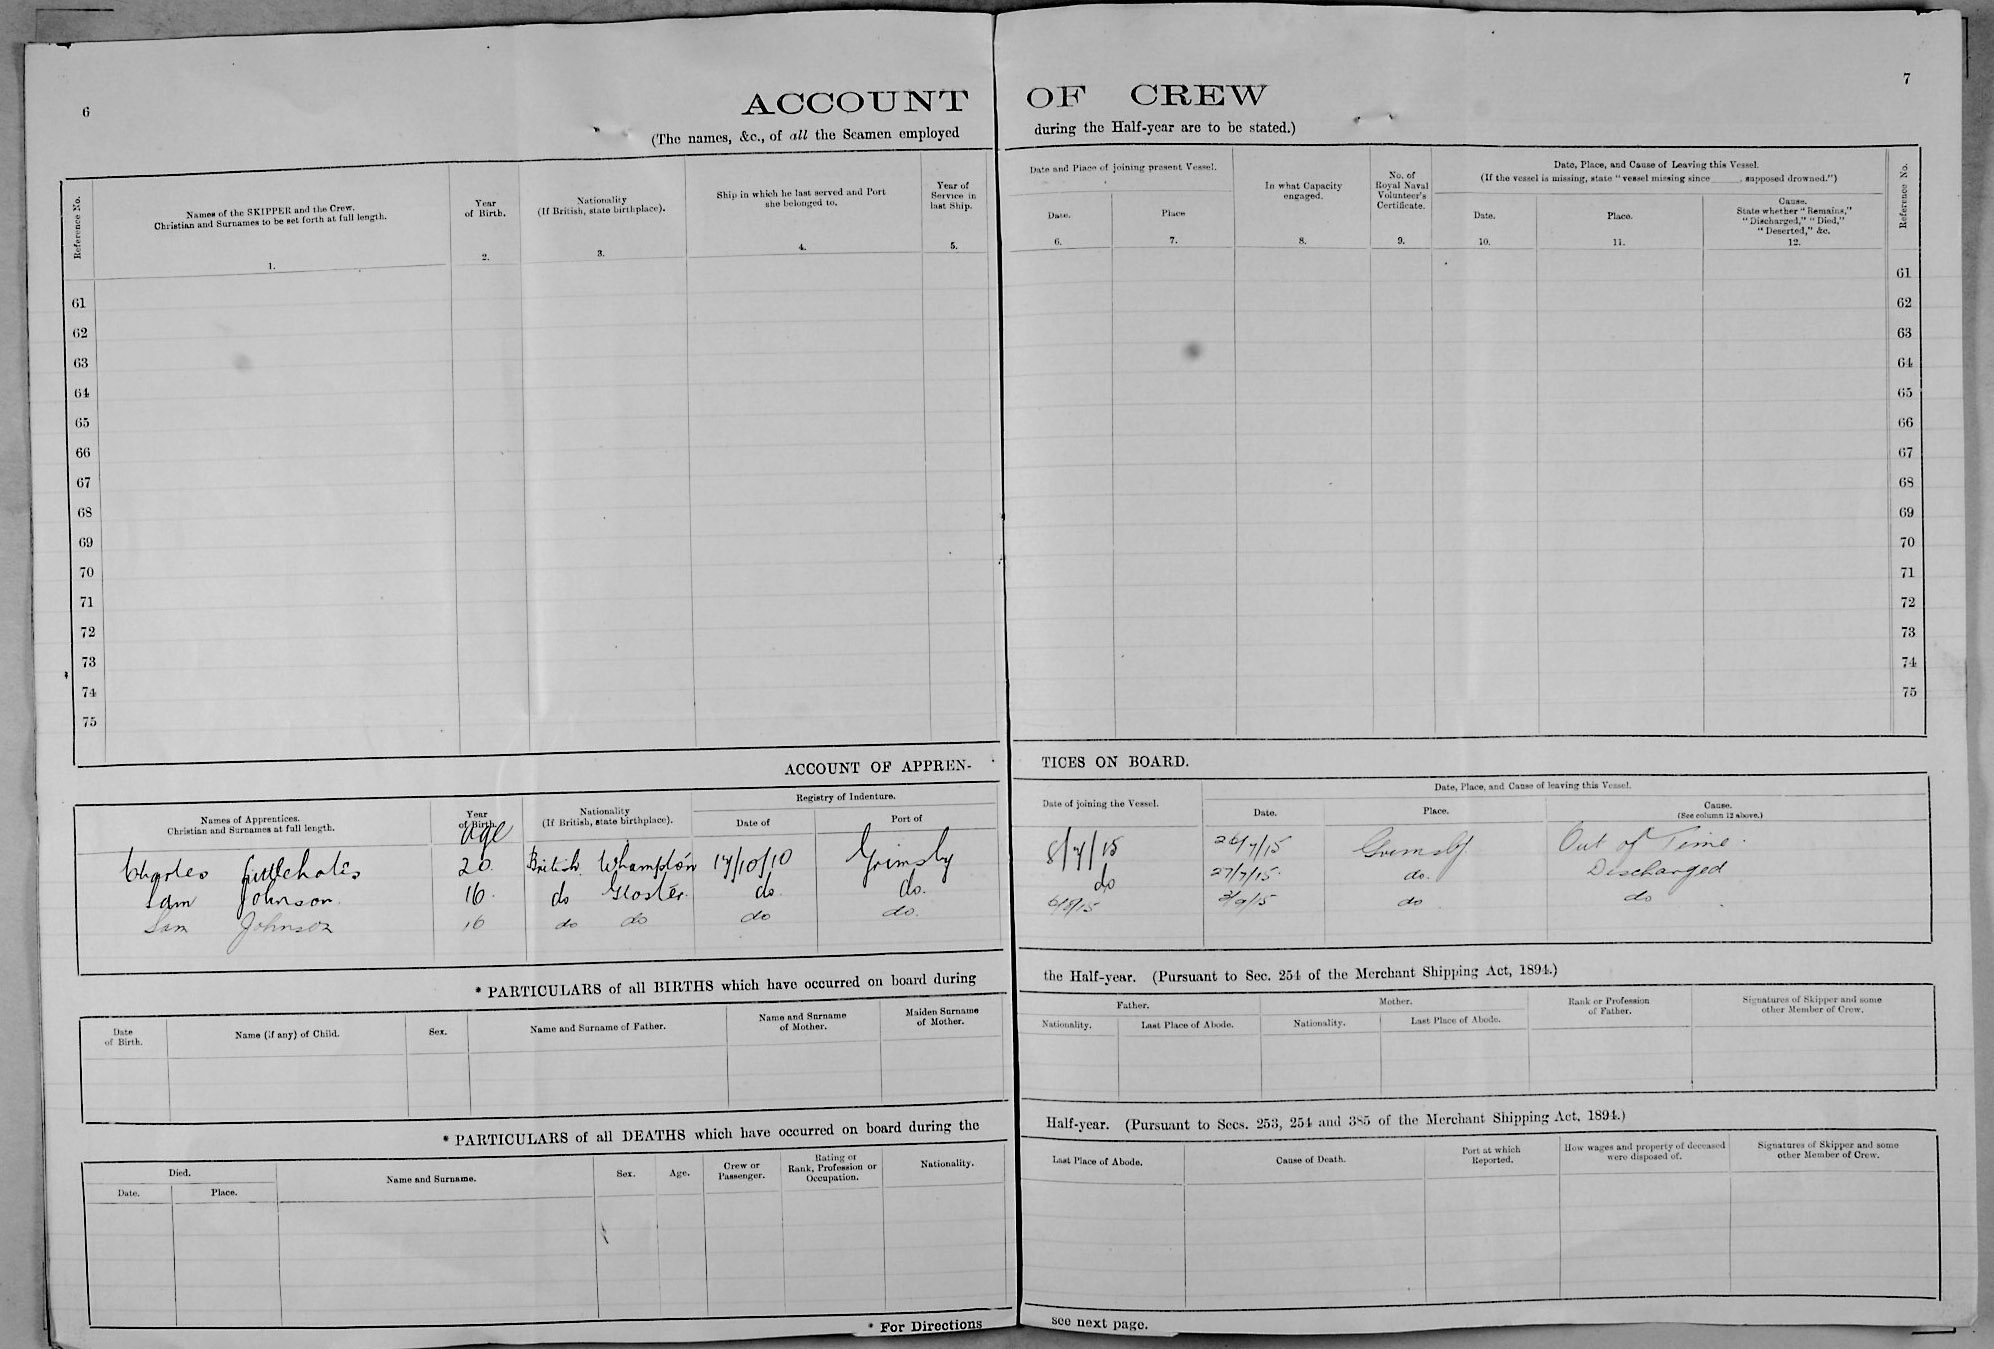 6
7
ACCOUNT OF CREW
(The names, &c., of all the Seamen employed during the Half-year are to be stated.)
Reference No.
Names of the SKIPPER and the Crew.
Christian and Surnames to be set forth at full length.
1.
Year
of Birth.
2.
Nationality
(If British, state birthplace).
3.
Ship in which he last served and Port
she belonged to.
4.
Year of
Service in
last Ship.
5.
Date and Place of joining present Vessel.
Date.
6.
Place
7.
In what Capacity
engaged.
8.
No. of
Royal Naval
Volunteer's
Certificate.
9.
Date, Place, and Cause of Leaving this Vessel.
(If the vessel is missing, state "vessel missing since ____, supposed drowned.")
Date.
10.
Place.
11.
Cause.
State whether "Remains,"
"Discharged," "Died,"
"Deserted," &c.
12.
Reference No.
61 61
62 62
63 63
64 64
65 65
66 66
67 67
68 68
69 69
70 70
71 71
72 72
73 73
74 74
75 75
ACCOUNT OF APPREN- TICES ON BOARD.
Names of Apprentices.
Christian and Surnames at full length.
Year
of Birth.
age
Nationality
(If British, state birthplace).
Registry of Indenture.
Date of
Port of
Date of joining the Vessel.
Date, Place, and Cause of leaving this Vessel.
Date.
Place.
Cause.
(See column 12 above.)
Charles 20 British Whampton 17/10/10 Grimsby 8/7/15 26/7/15 Grimsby Out of Time.
Sam Johnson. 16. do Gloster. do do. do 27/7/15 do. Discharged
Sam Johnson 16 do do do do. 6/8/15 3/9/15 do do
* PARTICULARS of all BIRTHS which have occurred on board during the Half-year. (Pursuant to Sec. 254 of the Merchant Shipping Act, 1894.)
Date
of Birth.
Name (if any) of Child.
Sex.
Name and Surname of Father.
Name and Surname
of Mother.
Maiden Surname
of Mother.
Father.
Nationality.
Last Place of Abode.
Mother.
Nationality.
Last Place of Abode.
Rank or Profession
of Father.
Signatures of Skipper and some
other Member of Crew.
* PARTICULARS of all DEATHS which have occurred on board during the Half-year. (Pursuant to Secs. 253, 254 and 385 of the Merchant Shipping Act, 1894.)
Died.
Date.
Place.
Name and Surname.
Sex.
Age.
Crew or
Passenger.
Rating or
Rank, Profession or
Occupation.
Nationality.
Last Place of Abode.
Cause of Death.
Port at which
Reported.
How wages and property of deceased
were disposed of.
Signatures of Skipper and some
other Member of Crew.
* For Directions see next page.